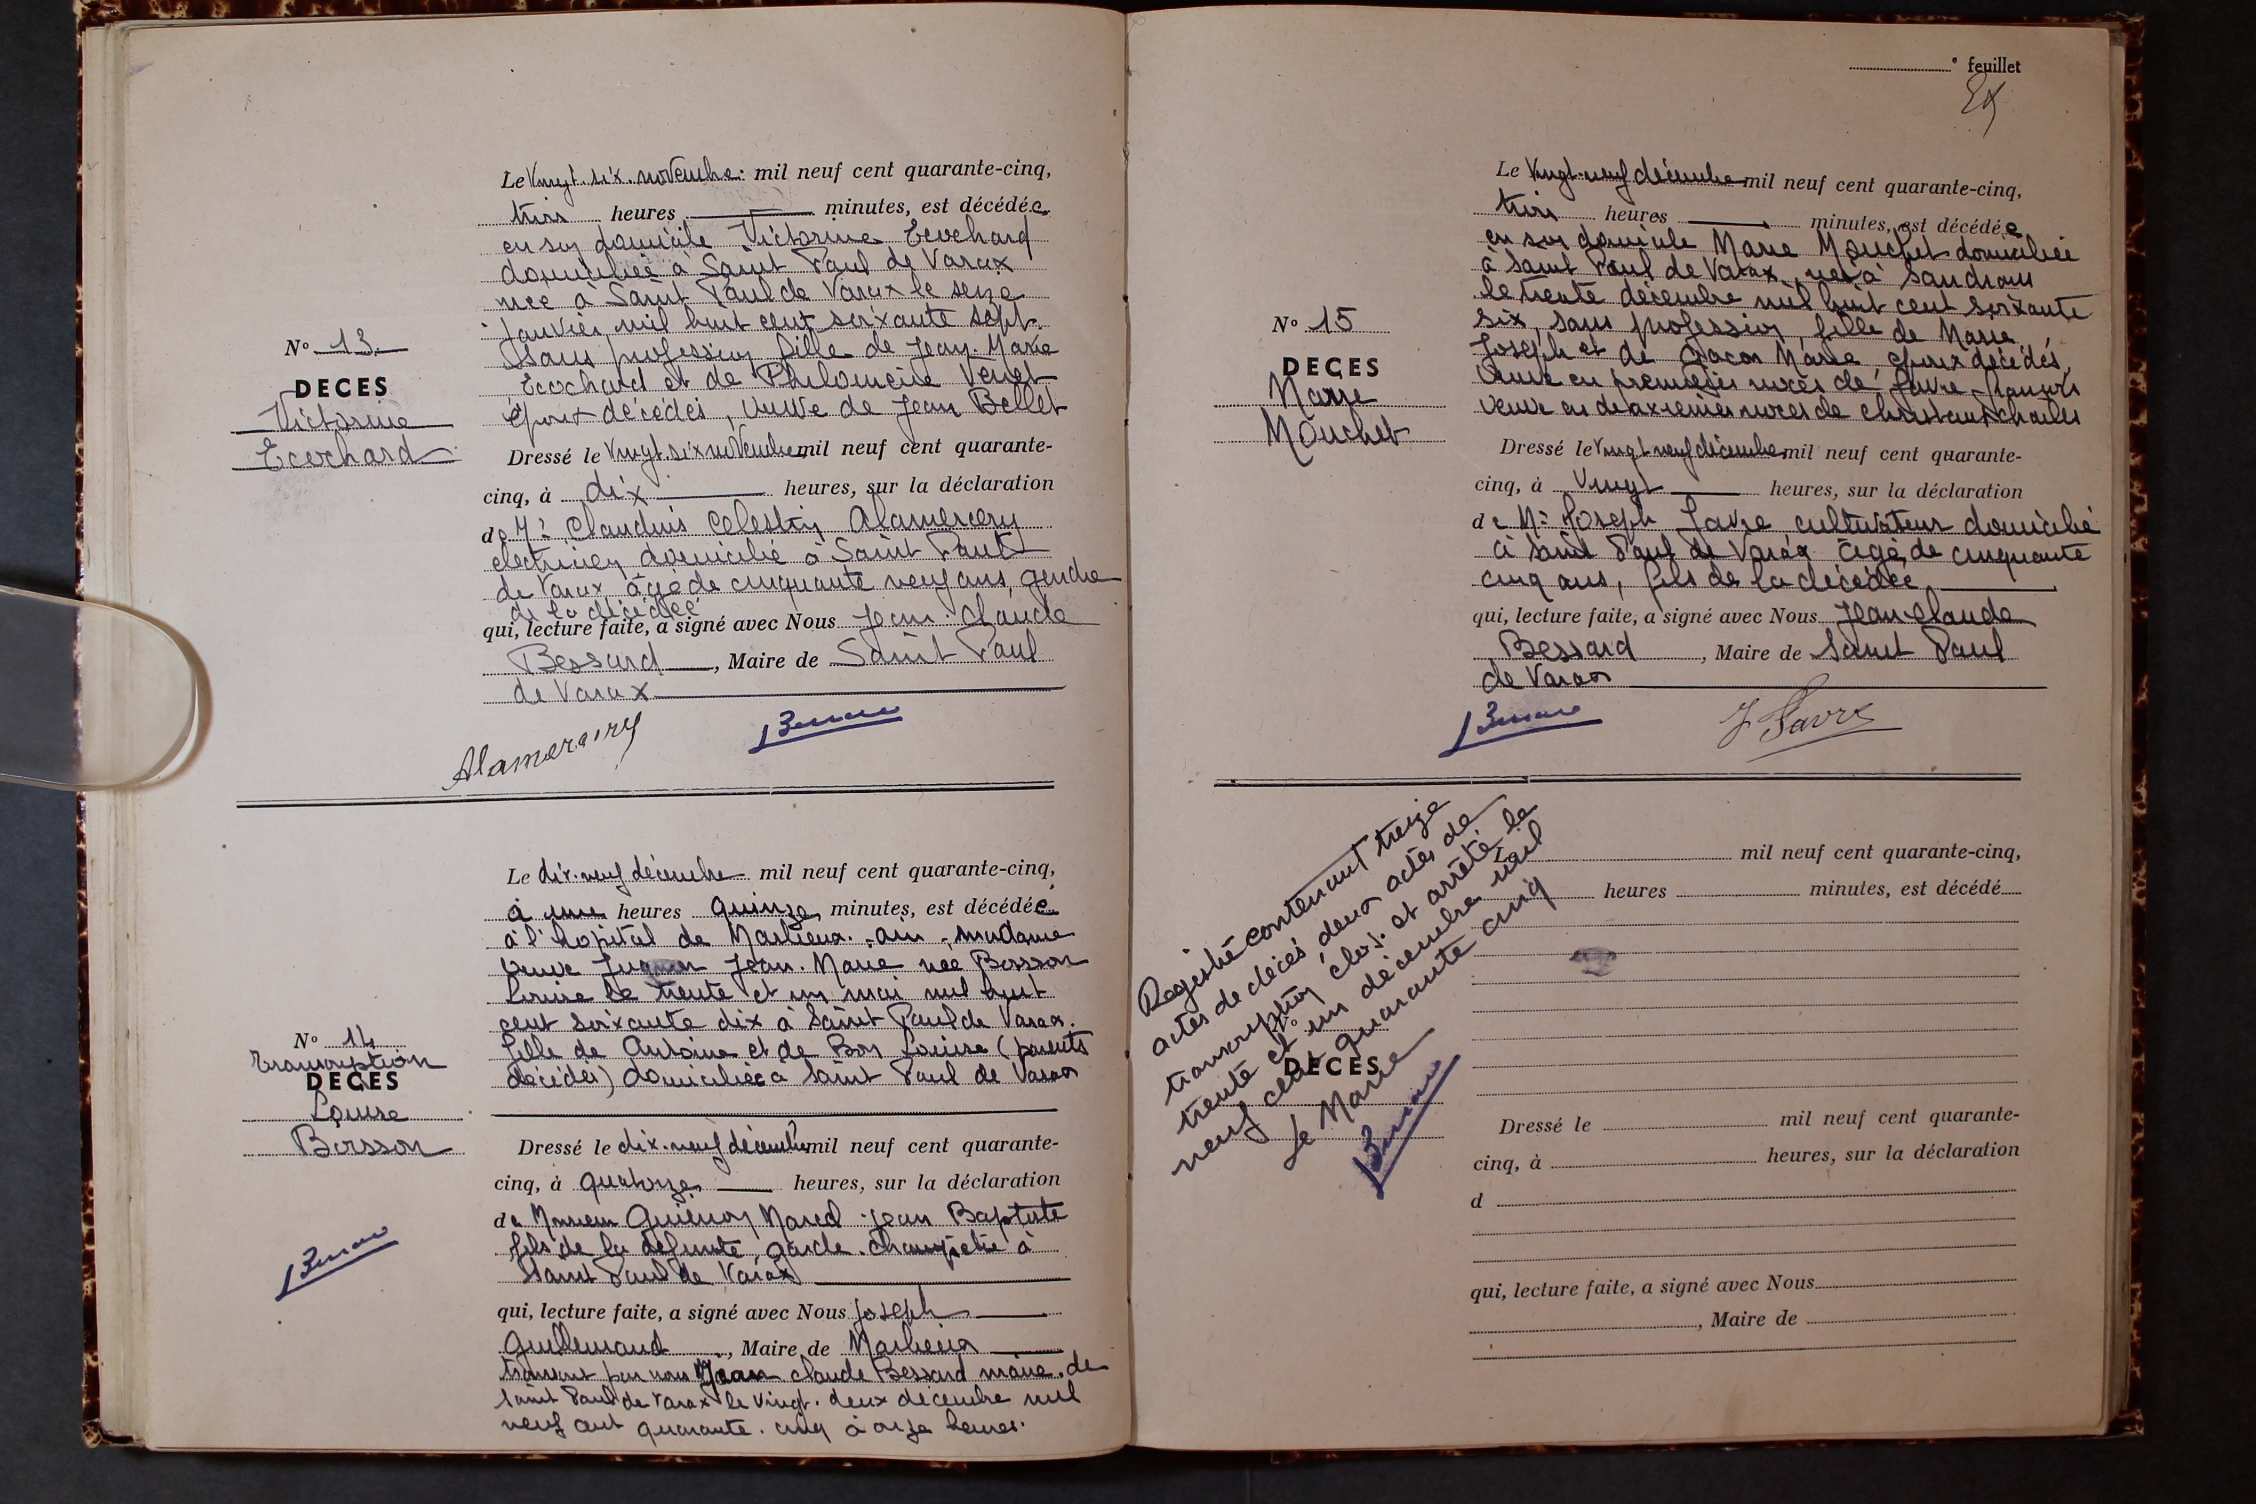 Le vingt. six. novembre. mil neuf cent quarante-cinq,
trois heures minutes, est décédée
en son domicile Victorine Ecochard
domiciliée à Saint Paul de Varax
née à Saint Paul de Varax le seize
janvier mil huit cent soixante sept.
sans profession fille de Jean. Marie
Ecochard et de Philomène Venet
époux décédés, veuve de Jean Bellet
N° 13
DECES
Victorine
Ecochard
Dressé le vingt. six novembre mil neuf cent quarante-
cinq, à dix heures, sur la déclaration
de Mr Claudius Celestin Alamercery
electricien domicilié à Saint Paul
de Varax, âgé de cinquante neuf ans, gendre
de la décédée
qui, lecture faite, a signé avec Nous Jean. Claude
Bessard, Maire de Saint Paul
de Varax
Alamercery
Le dix. neuf décembre mil neuf cent quarante-cinq,
à une heures quinze minutes, est décédée
à l'hopital de Marlieux. ain. madame
veuve Jean. Marie née Boisson
Louise le trente et un mai mil huit
cent soixante dix à Saint Paul de Varax.
fille de Antoine et de Bon Louise (parents
décédés) domiciliée à Saint Paul de Varax
N° 14
transcription
DECES
Louise
Boisson
Dressé le dix. neuf décembre mil neuf cent quarante-
cinq, à quatorze heures, sur la déclaration
de Monsieur Marcel Jean Baptiste
fils de la défunte, garde. champêtre à
Saint Paul de Varax
qui, lecture faite, a signé avec Nous Joseph
Guillemaud, Maire de Marlieux
transcrit par nous Jean claude Bessard maire. de
Saint Paul de Varax le vingt. deux décembre mil
neuf cent quarante. cinq à onze heures.
° feuillet
Le vingt-neuf décembre mil neuf cent quarante-cinq,
trois heures minutes, est décédée
en son domicile Marie Mouchet domiciliée
à Saint Paul de Varax, née à Sandrans
le trente décembre mil huit cent soixante
six, sans profession, fille de Marie
Joseph et de Gacon Marie, époux décédés,
veuve en premières noces de Favre François
veuve en deuxièmes noces de Charles
N° 15
DECES
Marie
Mouchet
Dressé le vingt neuf décembre mil neuf cent quarante-
cinq, à vingt heures, sur la déclaration
de Mr Joseph Favre cultivateur domicilié
à Saint Paul de Varax âgé de cinquante
cinq ans, fils de la décédée
qui, lecture faite, a signé avec Nous Jean Claude
Bessard, Maire de Saint Paul
de Varax
J Favre
Registre contenant treize
actes de décès, deux actes de
transcription, clos. et arrêté le
trente et un décembre mil
neuf cent quarante cinq
Le Maire
Le mil neuf cent quarante-cinq,
heures minutes, est décédé
N°
DECES
Dressé le mil neuf cent quarante-
cinq, à heures, sur la déclaration
d
qui, lecture faite, a signé avec Nous
, Maire de